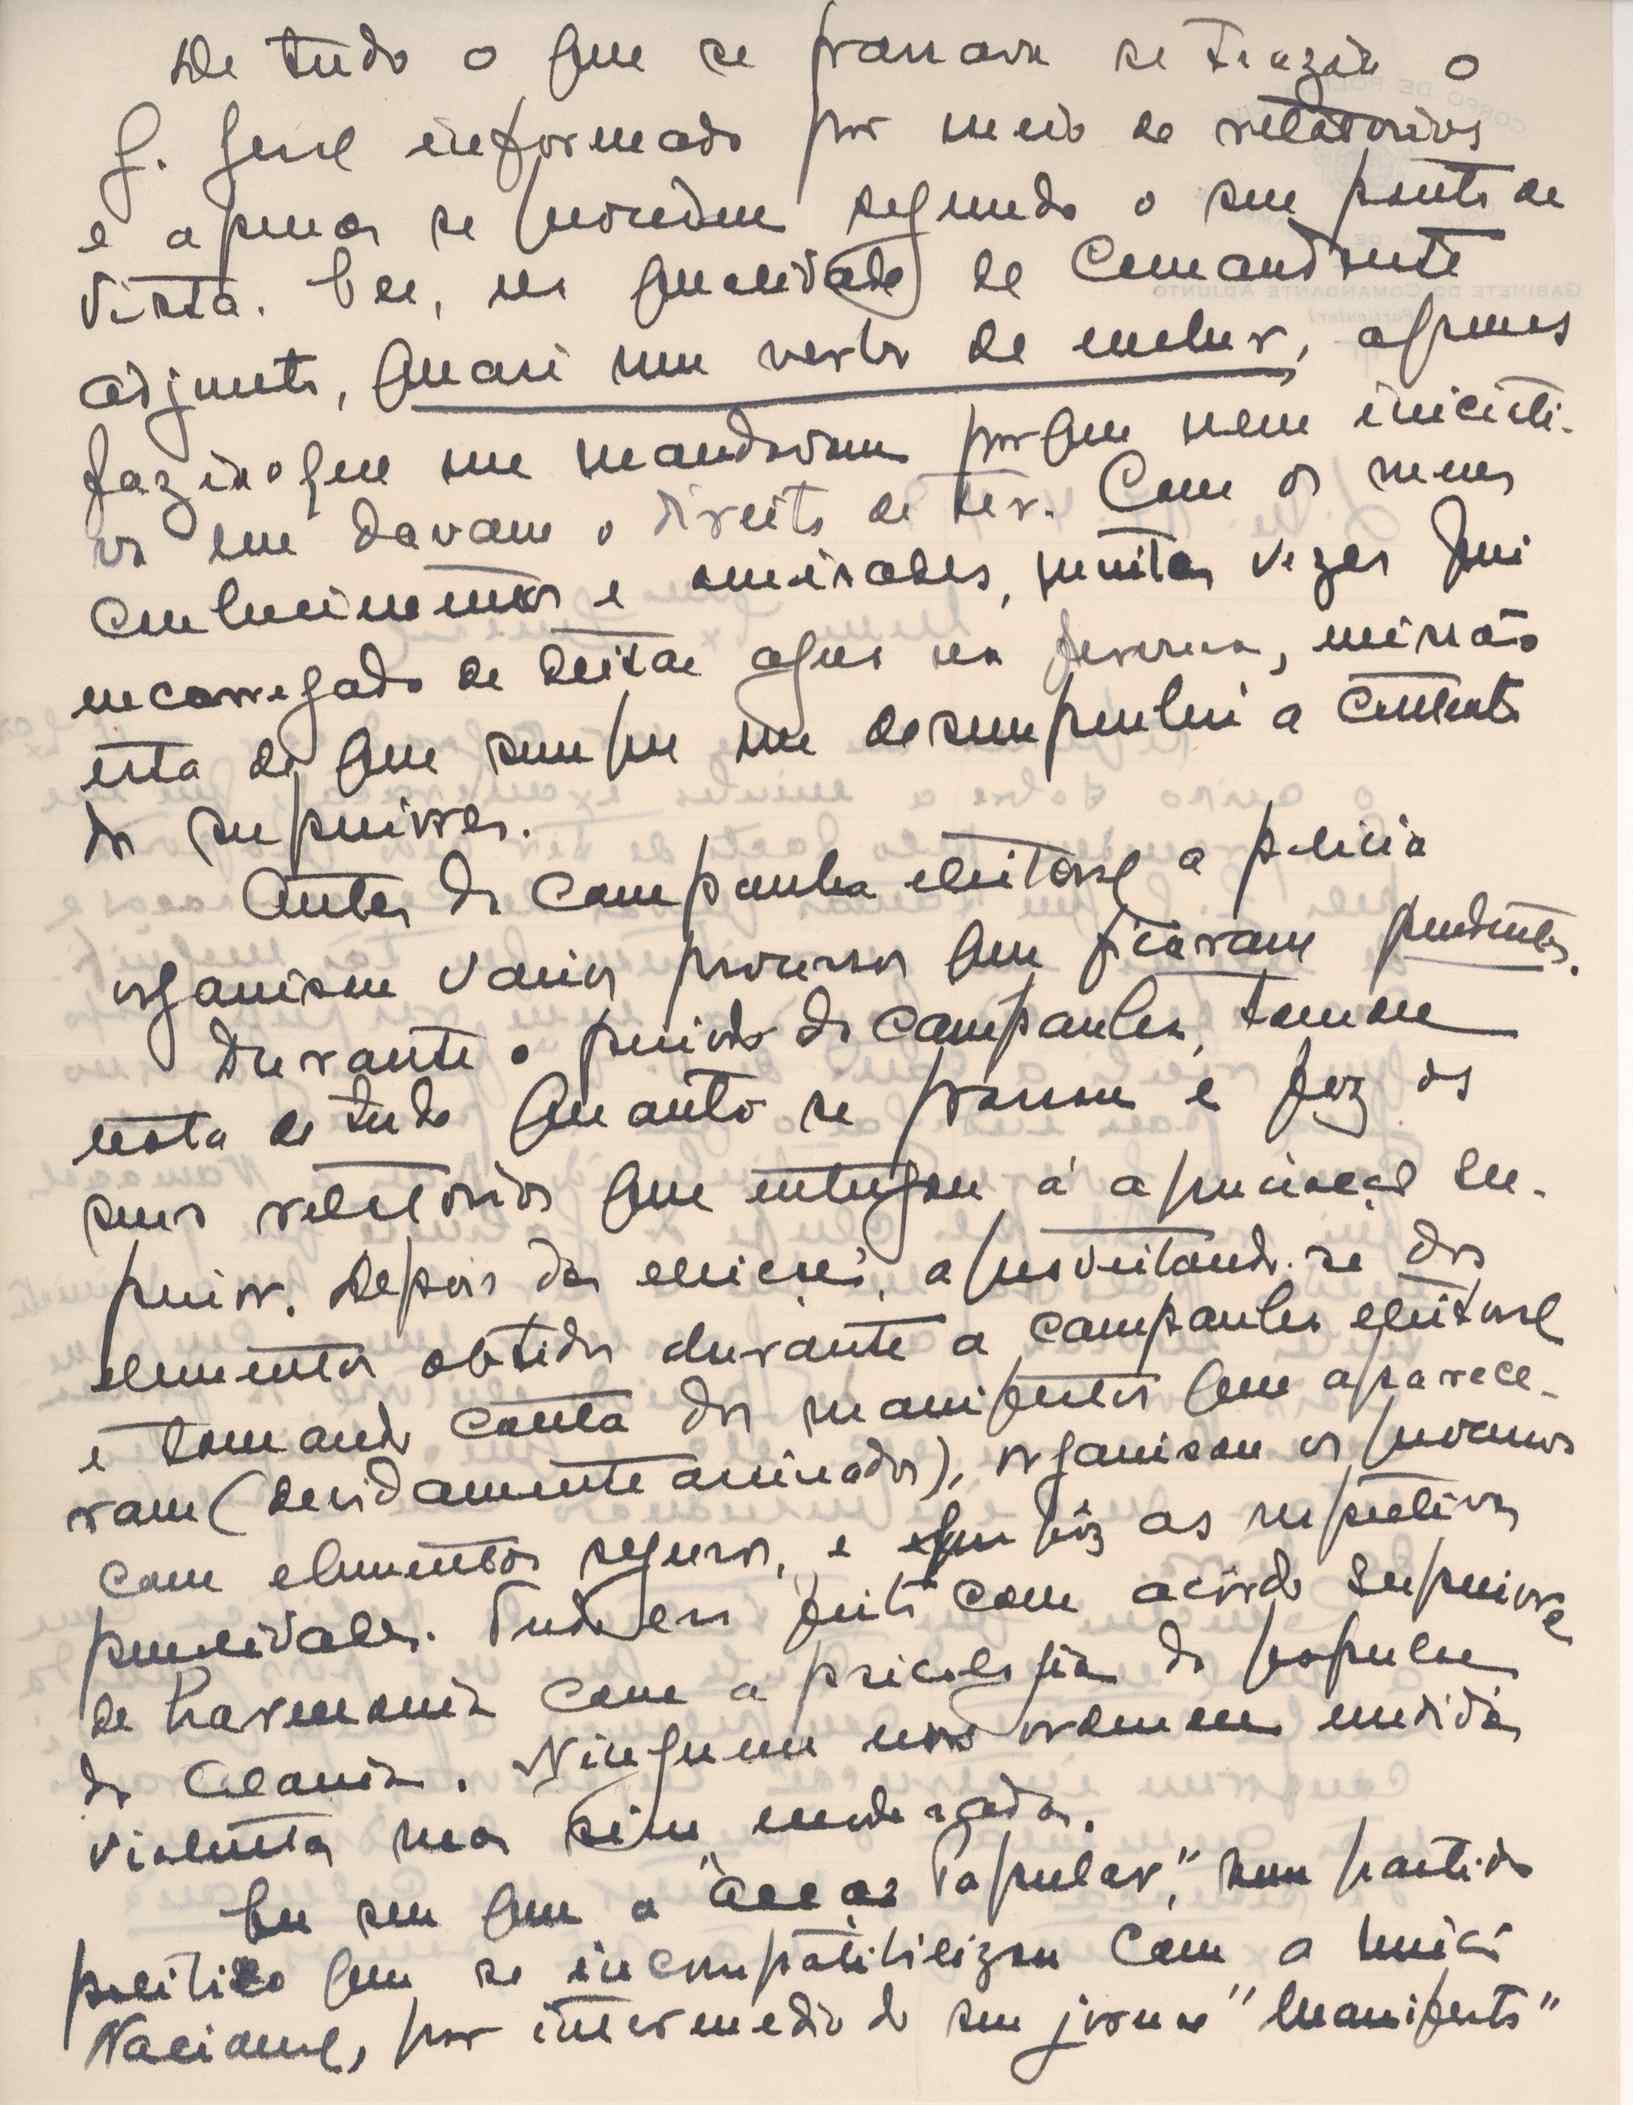 De tudo o que se passava se trazia o
G. Geral informado por meio de relatorios
e apenas se procedeu segundo o seu ponto de
vista. Eu, na qualidade de Comandante
adjunto, quasi um verbo de encher, apenas
fazia o que me mandavam porque nem iniciati-
va me davam o direito de ter. Com os meus
conhecimentos e amizades, muitas vezes fui
encarregado de deitar agua na fervura, missão
esta de que sempre me desempenhei a contento
dos superiores.
Antes da campanha eleitoral a policia
organisou varios processos que ficaram pendentes.
Durante o periodo da campanha, tomou
nota de tudo quanto se passou e fez os
seus relatorios que entregou á apreciação su-
perior. Depois das eleições, aproveitando-se dos
elementos obtidos durante a campanha eleitoral
e tomando conta dos manifestos que aparece-
ram (devidamente assinados), organisou os processos
com elementos seguros, e as respectivas
penalidades. Tudo era feito com acôrdo superior e
de harmonia com a psicologia do popular
da Colonia. Ninguem nos ordenou medidas
violentas mas sim moderadas.
Eu sei que a "Acção Popular," num partido
politico que se incompatibilizou com a União
Nacional, por intermedio do seu jornal "Manifesto"
GABINETE DO COMANDANTE ADJUNTO
(Particular)